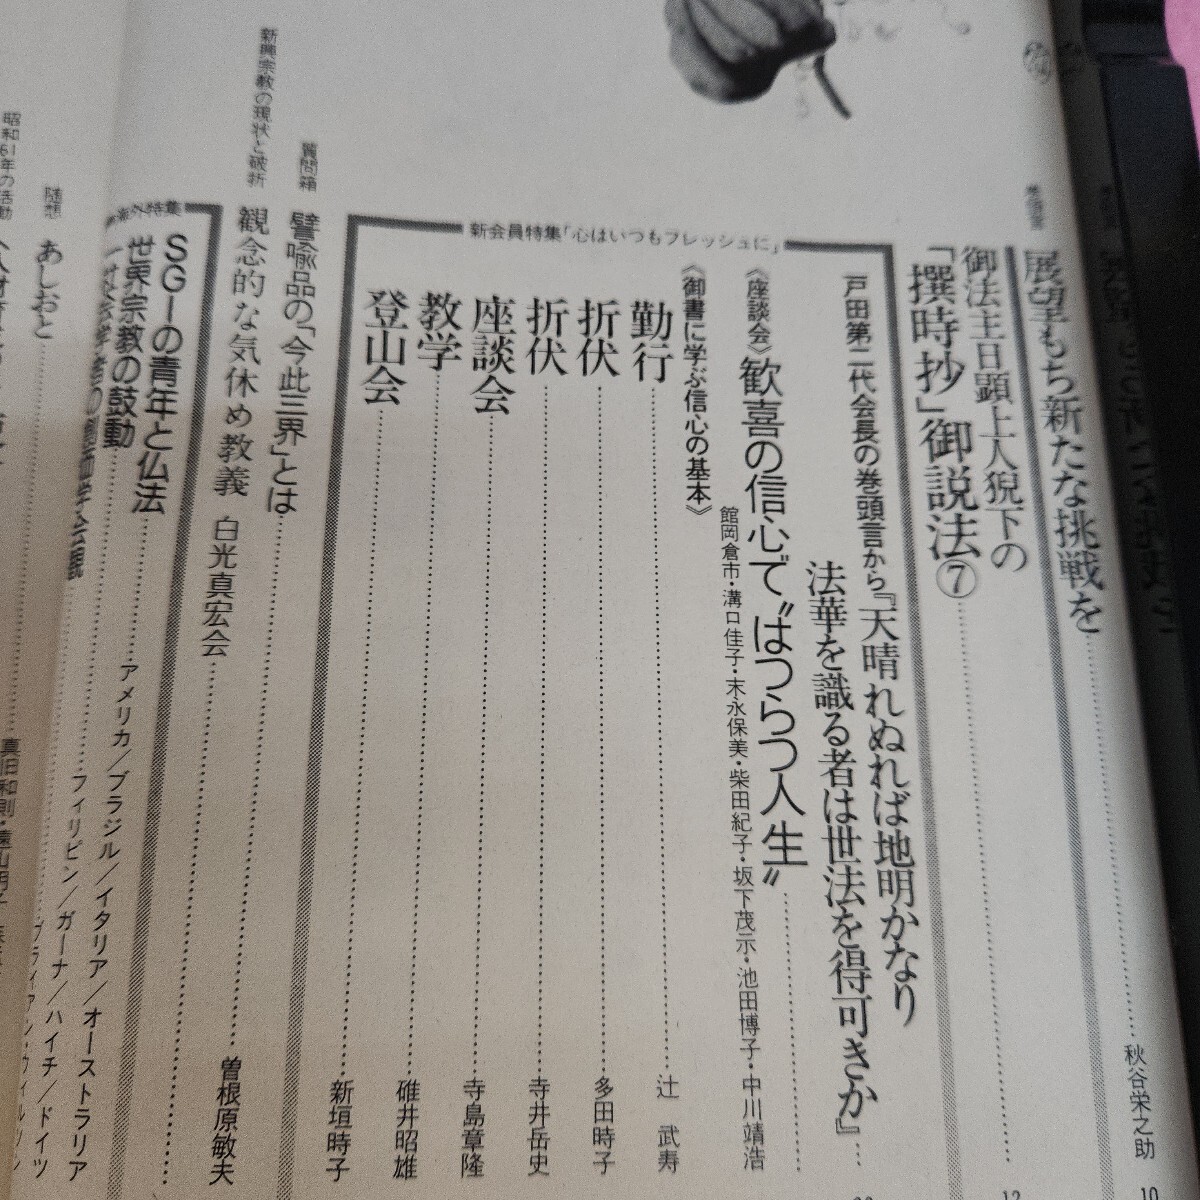 巻頭言
展望もち新たな挑戦を
秋谷栄之助
10
御法主日顕上人猊下の
「撰時抄」御説法⑦
12
新会員特集「心はいつもフレッシュに」
戸田第二代会長の巻頭言から『天晴れぬれば地明かなり
法華を識る者は世法を得可きか』
《座談会》歓喜の信心で〝はつらつ人生〟
館岡倉市・溝口佳子・末永保美・柴田紀子・坂下茂示・池田博子・中川靖浩
《御書に学ぶ信心の基本》
勤行
辻 武寿
折伏
多田時子
折伏
寺井岳史
座談会
寺島章隆
教学
碓井昭雄
登山会
新垣時子
質問箱
譬喩品の「今此三界」とは
新興宗教の現状と破折
観念的な気休め教義 白光真宏会
曽根原敏夫
海外特集
SGIの青年と仏法
アメリカ／ブラジル／イタリア／オーストラリア
世界宗教の鼓動
フィリピン／ガーナ／ハイチ／ドイツ
一社会学者の創価学会観
ブライアン・ウィルソン
随想
あしおと
昭和61年の活動